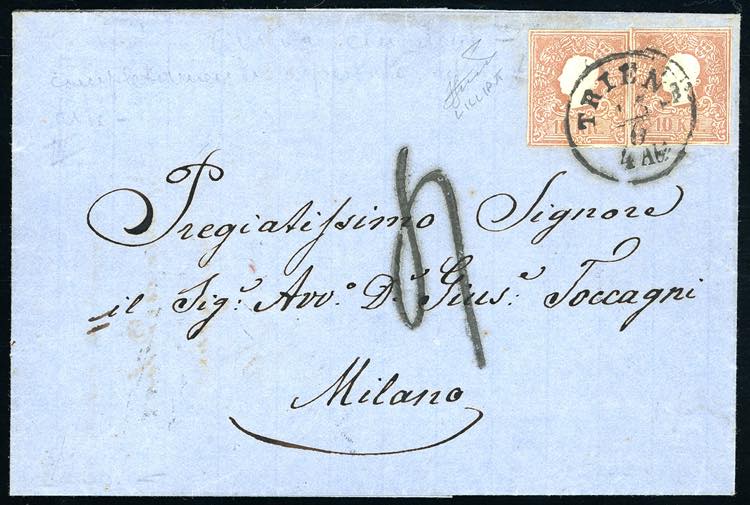 10 KR
10 K
TRIENT
4 AB
LILLIPUT
Pregiatissimo Signore
il Sigr. Avvo. Dr. Giuse. Toccagni
Milano